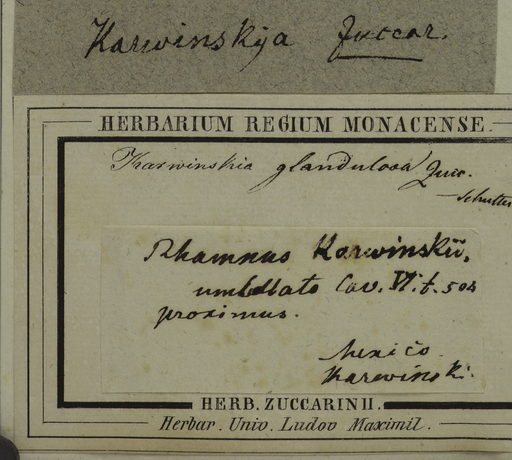 Karwinskya Zuccar.
HERBARIUM REGIUM MONACENSE.
Karwinskia glandulosa Zucc.
Rhamnus Karwinskii,
umbellato Cav. VI. t. 504
proximus.
Mexico
Karwinski.
HERB. ZUCCARINII.
Herbar. Univ. Ludov Maximil.